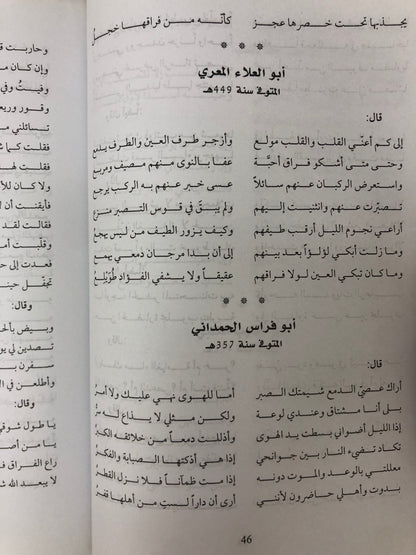 يجذبها تحت خصرها عجز كأنّه من فراقها خجل
* * *
أبو العلاء المعري
المتوفى سنة 449هـ
قال:
إلى كم أعنّي القلب والقلب مولع وأزجر طرف العين والطرف يدمع
وحتى متى أشكو فراق أحبّة عفا بالنوى منهم مصيف ومربع
واستعرض الركبان عنهم سائلاً عسى خبر عنهم به الركب يرجع
تصبّرت عنهم وانثنيت إليهم ولم يبقَ في قوس التصبر منزع
أراعي نجوم الليل أرقب طيفهم وكيف يزور الطيف من ليس يهجع
وما زلت أبكي لؤلؤاً بعد بينهم إلى أن بدا مرجان دمعي يهمع
وما كان تبكي العين لولا فراقهم عقيقاً ولا يشفي الفؤاد طويلع
* * *
أبو فراس الحمداني
المتوفى سنة 357هـ
قال:
أراك عصيّ الدمع شيمتك الصبر أما للهوى نهي عليك ولا أمرُ
بلى أنا مشتاق وعندي لوعة ولكن مثلي لا يذاع له سرُّ
إذا الليل أضواني بسطت يد الهوى وأذللت دمعاً من خلائقه الكبر
تكاد تضيء النار بين جوانحي إذا هي أذكتها الصبابة والفكر
معللتي بالوعد والموت دونه إذا مت ظمآناً فلا نزل القطر
بدوت وأهلي حاضرون لأنني أرى أن داراً لست من أهلها قفرُ
46
وحاربت
وإن كان
وفيتُ وفي
تسائلني
فقلت كما
فقلت لها
ولا كان
فأيقنت أن
فقالت لقد
وقلّبت
فعدت إلى
تجفّل
وقال:
تصدين
سفرن
وأطلعن في
وقال:
يا طول شوقي
راع الفراق
لا يبعد الله